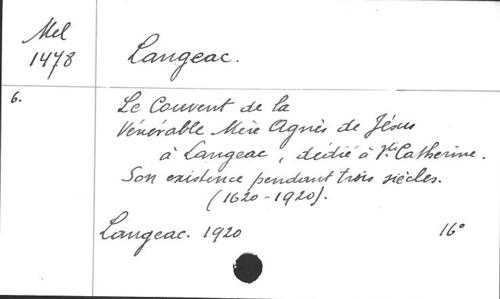 Mel
1478
Langeac.
6.
Le Couvent de la
Vénérable Mère Agnès de Jésus
à Langeac, dédié à Ste Catherine.
Son existence pendant trois siècles.
(1620-1920).
Langeac. 1920
16°